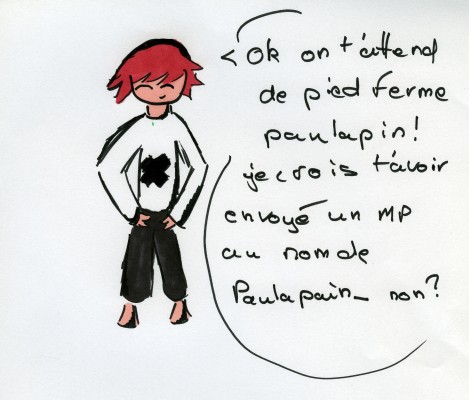 Ok on t'attend
de pied ferme
paulapin!
je crois t'avoir
envoyé un MP
au nom de
Paulapain_ non?